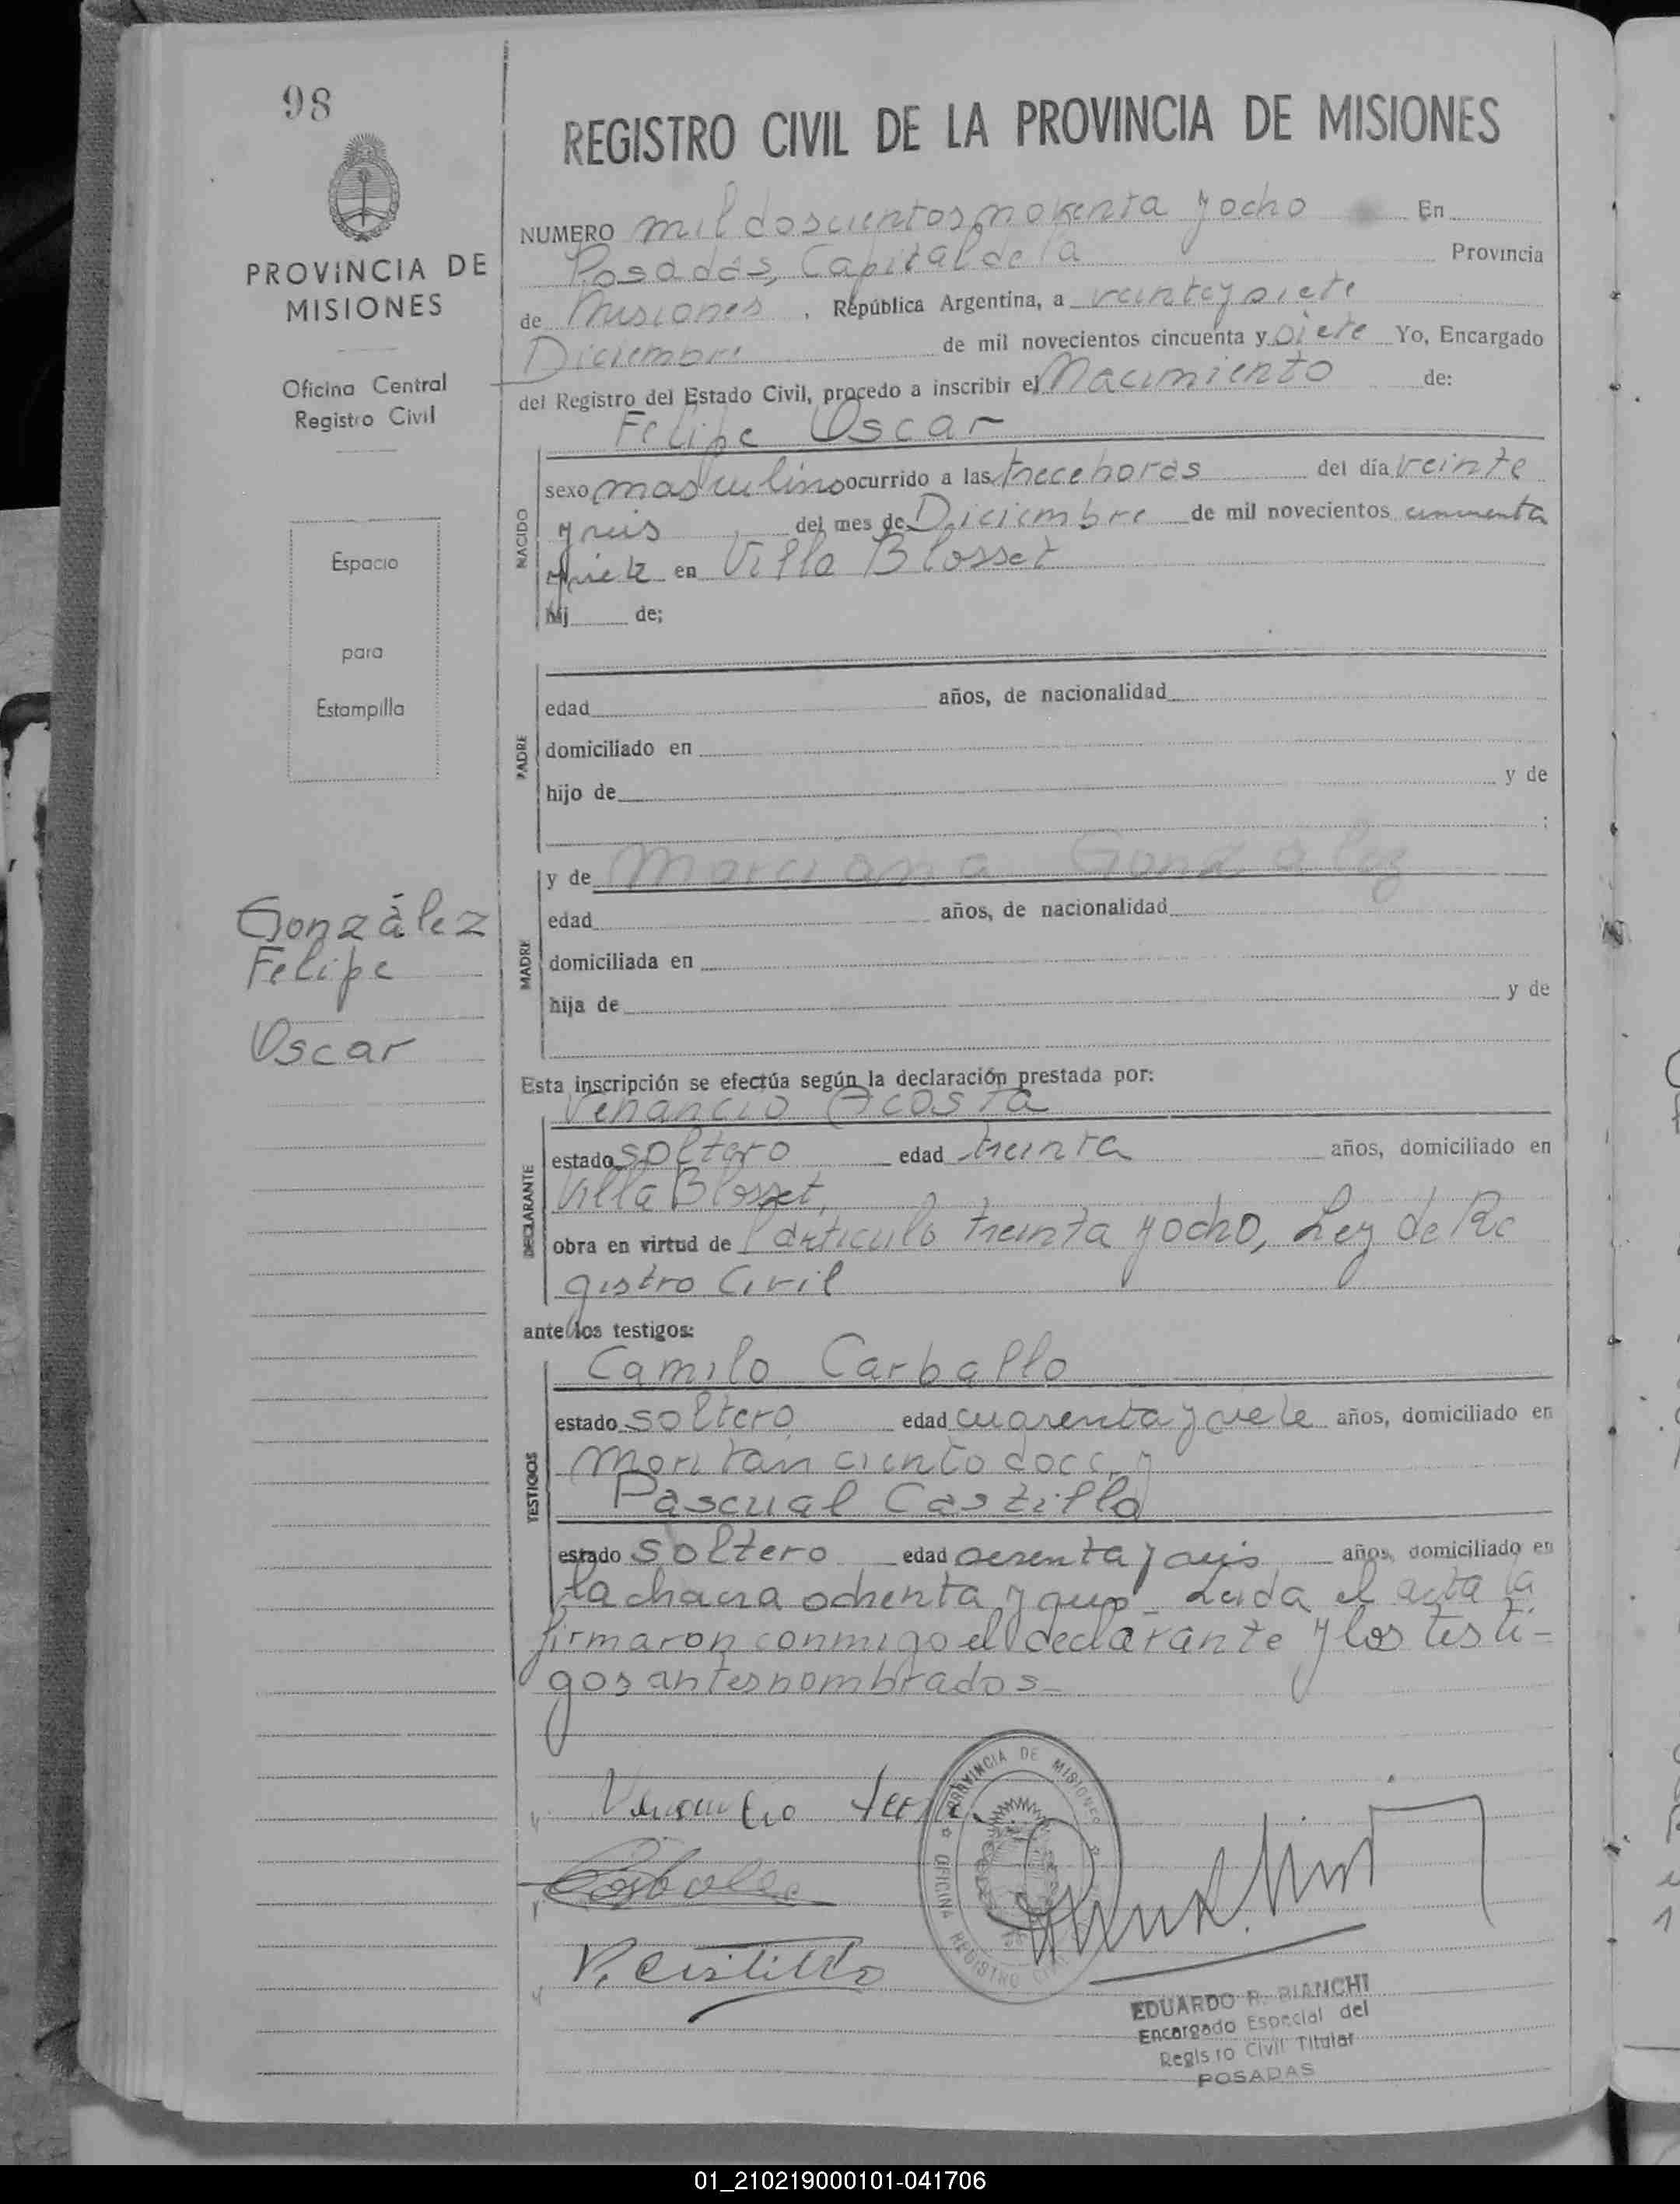 98
REGISTRO CIVIL DE LA PROVINCIA DE MISIONES
PROVINCIA DE
MISIONES
Oficina Central
Registro Civil
Espacio
para
Estampilla
González
Felipe
Oscar
NUMERO mil doscientos noventa y ocho En
Posadas, Capital de la Provincia
de Misiones, República Argentina, a veinte y siete
Diciembre de mil novecientos cincuenta y siete Yo, Encargado
del Registro del Estado Civil, procedo a inscribir el Nacimiento de:
Felipe Oscar
NACIDO
sexo masculino ocurrido a las trece horas del día veinte
y seis del mes de Diciembre de mil novecientos cincuenta
y siete en Villa Blosset
hij de;
PADRE
edad años, de nacionalidad
domiciliado en
hijo de y de
;
MADRE
y de Marciana Gonzalez
edad años, de nacionalidad
domiciliada en
hija de y de
Esta inscripción se efectúa según la declaración prestada por:
DECLARANTE
Venancio Acosta
estado soltero edad treinta años, domiciliado en
Villa Blosset,
obra en virtud de l artículo treinta y ocho, Ley de Re
gistro Civil
ante los testigos:
TESTIGOS
Camilo Carballo
estado soltero edad cuarenta y siete años, domiciliado en
ciento doce, y
Pascual Castillo
estado soltero edad sesenta y seis años, domiciliado en
la chacra ochenta y Leida el acta la
firmaron conmigo el declarante y los testi-
gos antes nombrados-
Venancio
P. Castillo
PROVINCIA DE MISIONES
OFICINA REGISTRO CIVIL
EDUARDO R. BIANCHI
Encargado Especial del
Registro Civil Titular
POSADAS
01_210219000101-041706